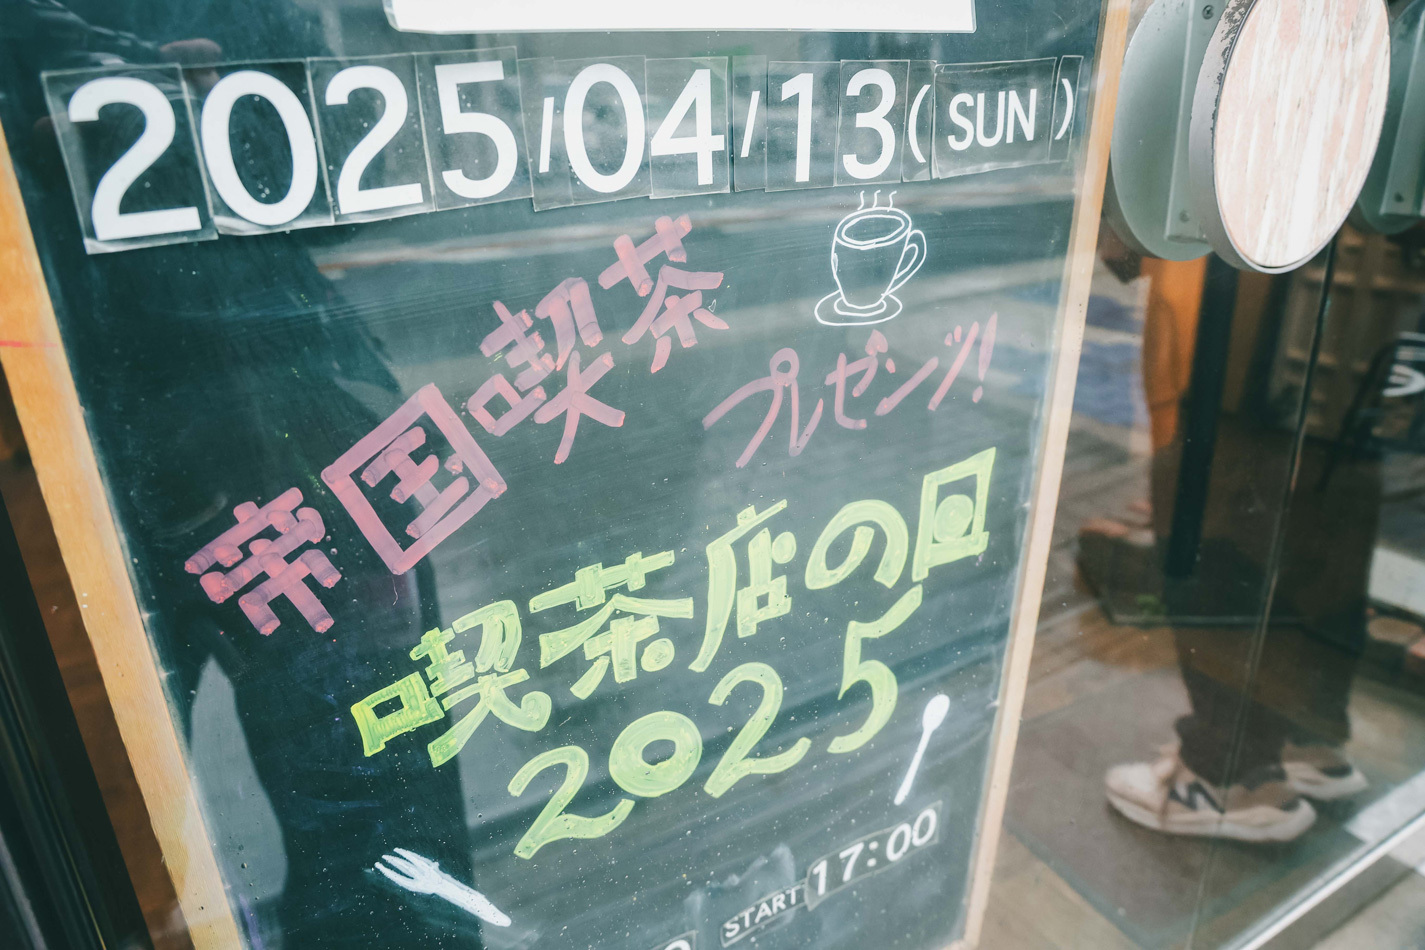 2025/04/13(SUN)
帝国喫茶
プレゼンツ!
喫茶店の日
2025
START 17:00